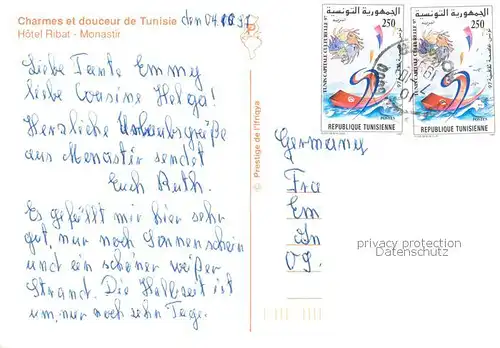 Charmes et douceur de Tunisie
Hôtel Ribat - Monastir
den 04.10.97
Liebe Tante Emmy
liebe Cousine Helga!
Herzliche Urlaubsgrüße
aus Monastir sendet
Euch Ruth.
Es gefällt mir hier sehr
gut, nur noch Sonnenschein
und ein schöner weißer
Strand. Die Halbzeit ist
um, nur noch zehn Tage.
Prestige de l'Ifriqya
الجمهورية التونسية
250
TUNIS CAPITALE CULTURELLE 97
POSTES
REPUBLIQUE TUNISIENNE
الجمهورية التونسية
250
TUNIS CAPITALE CULTURELLE 97
POSTES
REPUBLIQUE TUNISIENNE
Germany
Fra
Em
privacy protection
Datenschutz